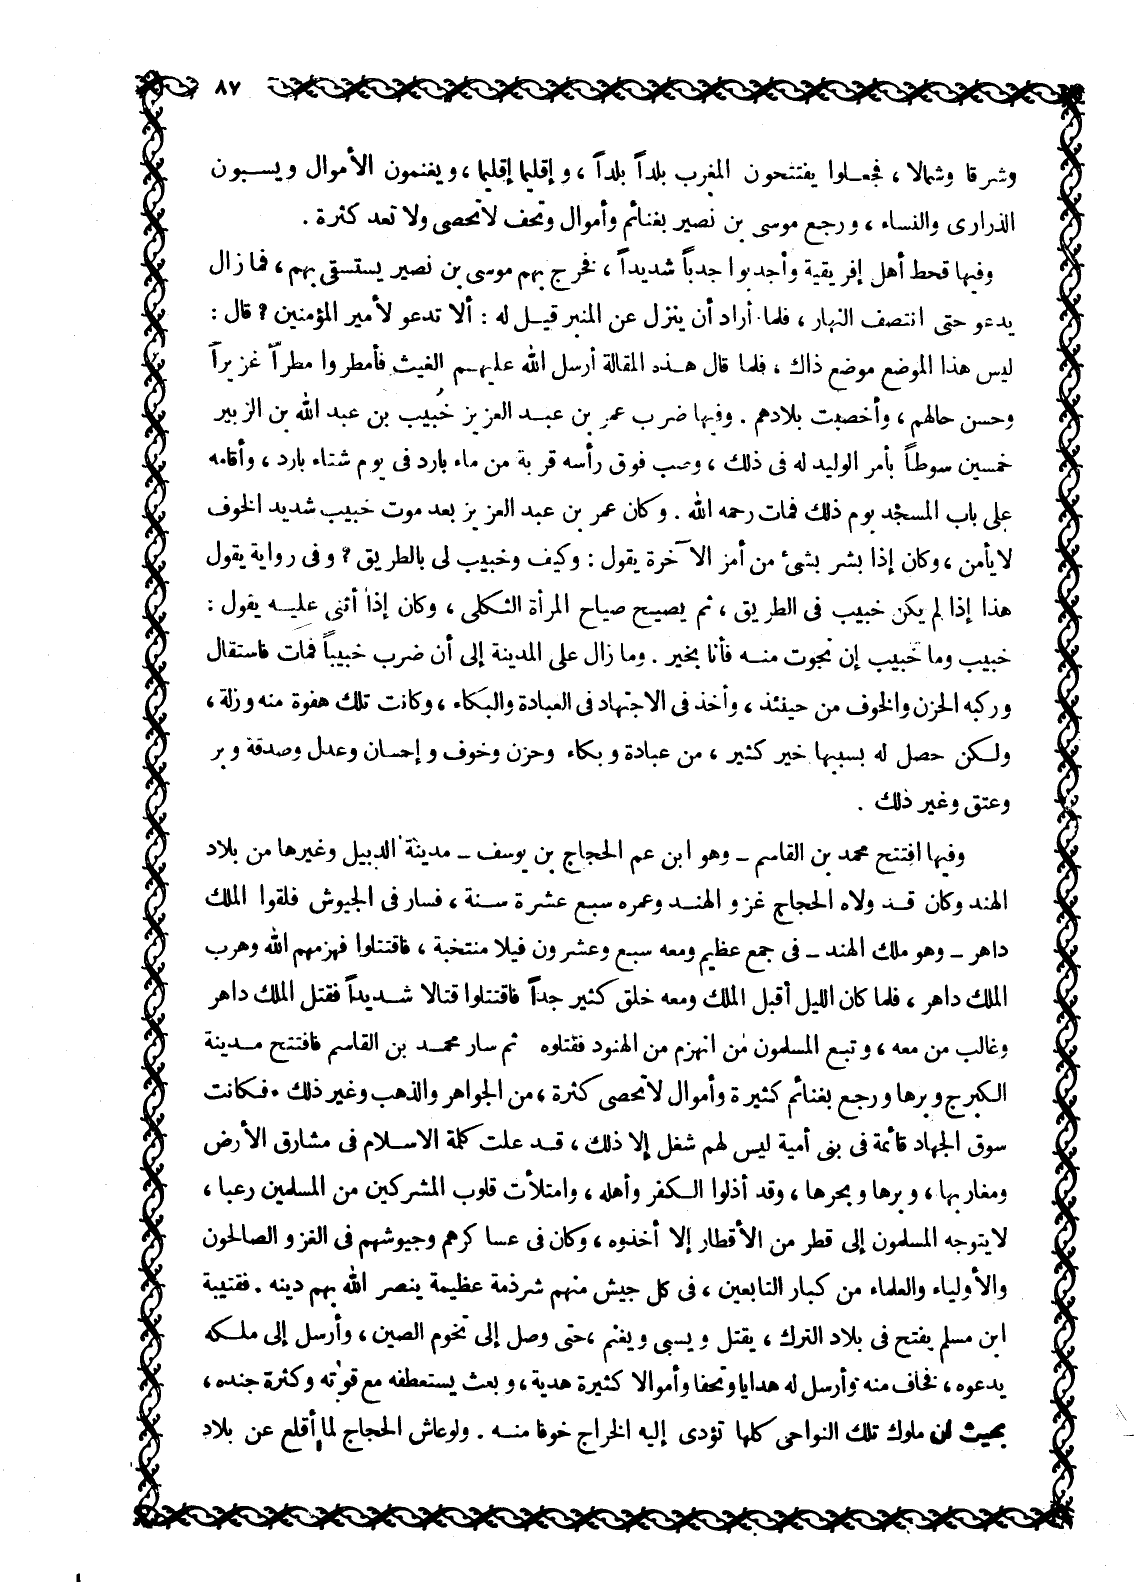 ٨٧
وشرقا وشمالا ، فجعلوا يفتتحون المغرب بلداً بلداً ، وإقليما إقليما ، ويغنمون الأموال ويسبون
الذرارى والنساء ، ورجع موسى بن نصير بغنائم وأموال وتحف لا تحصى ولا تعد كثرة .
وفيها قحط أهل إفريقية وأجدبوا جدباً شديداً ، فخرج بهم موسى بن نصير يستسقى بهم ، فما زال
يدعو حتى انتصف النهار ، فلما أراد أن ينزل عن المنبر قيل له : ألا تدعو لأمير المؤمنين ? قال :
ليس هذا الموضع موضع ذاك ، فلما قال هذه المقالة أرسل الله عليهم الغيث فأمطروا مطراً غزيراً
وحسن حالهم ، وأخصبت بلادهم . وفيها ضرب عمر بن عبد العزيز خُبيب بن عبد الله بن الزبير
خمسين سوطاً بأمر الوليد له فى ذلك ، وصب فوق رأسه قربة من ماء بارد فى يوم شتاء بارد ، وأقامه
على باب المسجد يوم ذلك فمات رحمه الله . وكان عمر بن عبد العزيز بعد موت خبيب شديد الخوف
لا يأمن ، وكان إذا بشر بشئ من أمر الآخرة يقول : وكيف وخبيب لى بالطريق ? وفى رواية يقول
هذا إذا لم يكن خبيب فى الطريق ، ثم يصيح صياح المرأة الثكلى ، وكان إذا أثنى عليه يقول :
خبيب وما خبيب إن نجوت منه فأنا بخير . وما زال على المدينة إلى أن ضرب خبيباً فمات فاستقال
وركبه الحزن والخوف من حينئذ ، وأخذ فى الاجتهاد فى العبادة والبكاء ، وكانت تلك هفوة منه وزلة ،
ولكن حصل له بسببها خير كثير ، من عبادة وبكاء وحزن وخوف وإحسان وعدل وصدقة وبر
وعتق وغير ذلك .
وفيها افتتح محمد بن القاسم ــ وهو ابن عم الحجاج بن يوسف ــ مدينة الدبيل وغيرها من بلاد
الهند وكان قد ولاه الحجاج غزو الهند وعمره سبع عشرة سنة ، فسار فى الجيوش فلقوا الملك
داهر ــ وهو ملك الهند ــ فى جمع عظيم ومعه سبع وعشرون فيلا منتخبة ، فاقتتلوا فهزمهم الله وهرب
الملك داهر ، فلما كان الليل أقبل الملك ومعه خلق كثير جداً فاقتتلوا قتالا شديداً فقتل الملك داهر
وغالب من معه ، وتبع المسلمون من انهزم من الهنود فقتلوه ثم سار محمد بن القاسم فافتتح مدينة
الكبرج وبرها ورجع بغنائم كثيرة وأموال لا تحصى كثرة ، من الجواهر والذهب وغير ذلك . فكانت
سوق الجهاد قائمة فى بنى أمية ليس لهم شغل إلا ذلك ، قد علت كلمة الاسلام فى مشارق الأرض
ومغاربها ، وبرها وبحرها ، وقد أذلوا الكفر وأهله ، وامتلأت قلوب المشركين من المسلمين رعبا ،
لا يتوجه المسلمون إلى قطر من الأقطار إلا أخذوه ، وكان فى عساكرهم وجيوشهم فى الغزو الصالحون
والأولياء والعلماء من كبار التابعين ، فى كل جيش منهم شرذمة عظيمة ينصر الله بهم دينه . فقتيبة
ابن مسلم يفتح فى بلاد الترك ، يقتل ويسبى ويغنم ، حتى وصل إلى تخوم الصين ، وأرسل إلى ملكه
يدعوه ، فخاف منه وأرسل له هدايا وتحفا وأموالا كثيرة هدية ، وبعث يستعطفه مع قوته وكثرة جنده ،
بحيث أن ملوك تلك النواحى كلها تؤدى إليه الخراج خوفا منه . ولو عاش الحجاج لما أقلع عن بلاد